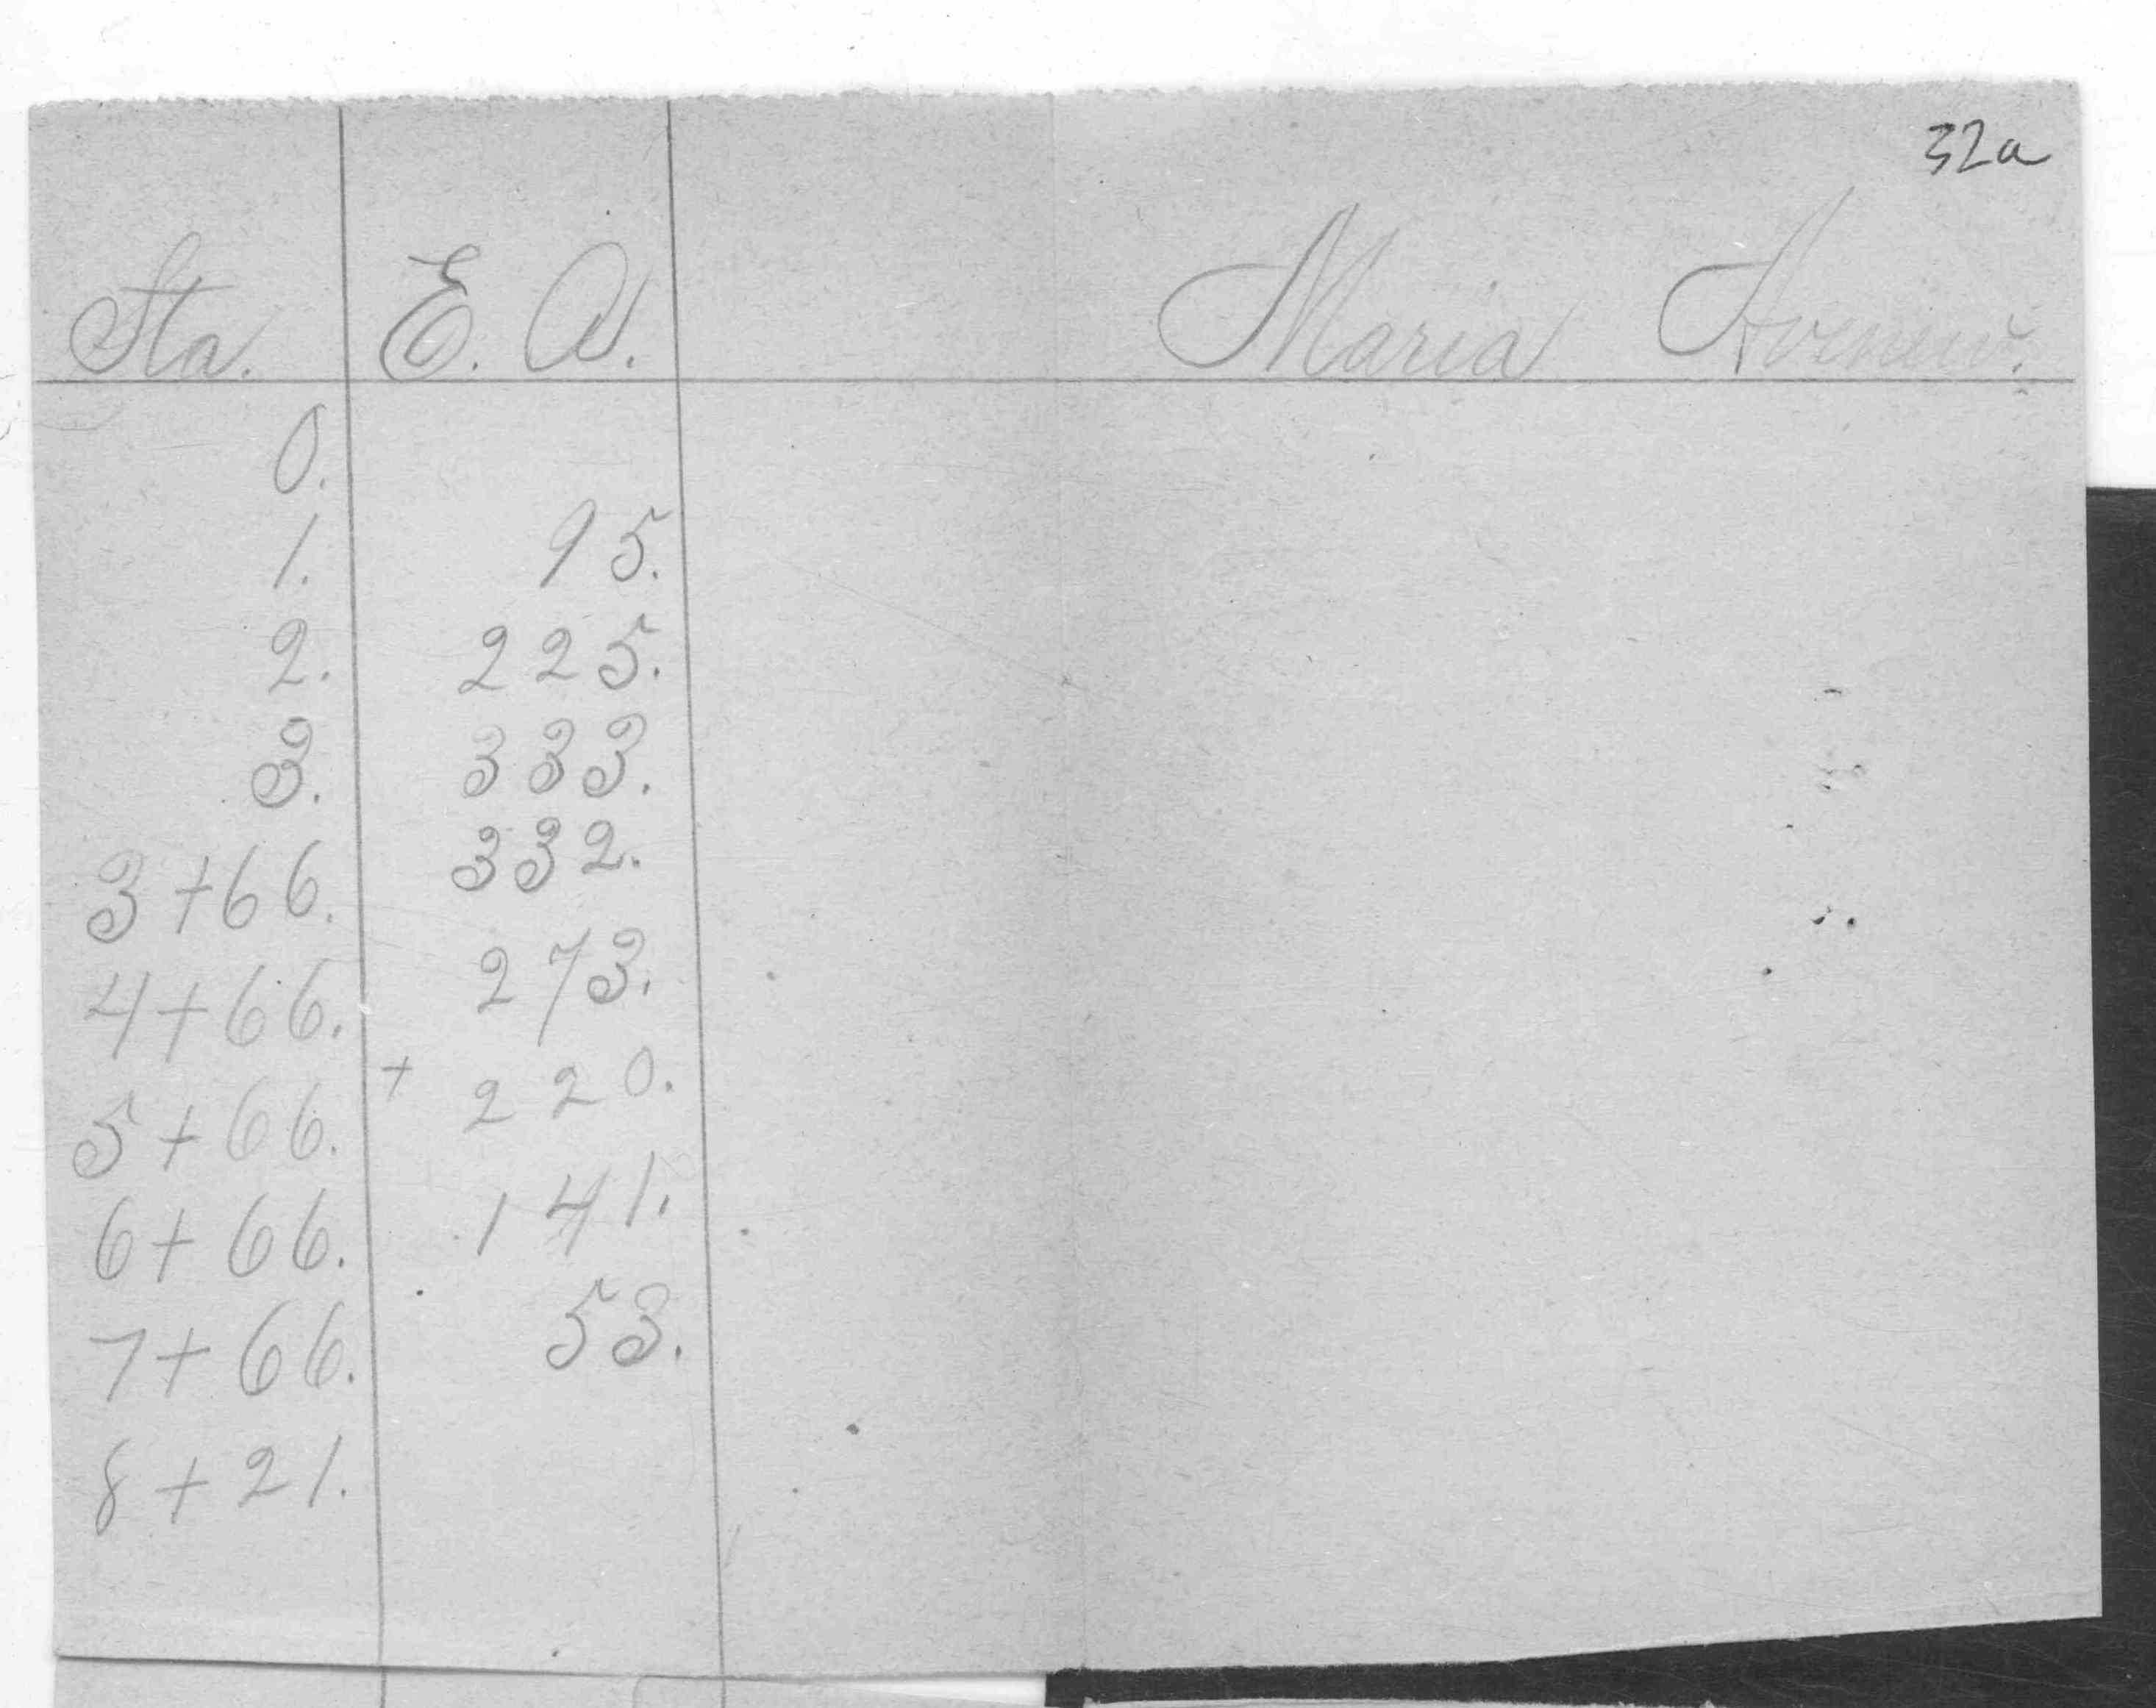 32a
Sta. E. Q. Maria
0.
1. 95.
2. 225.
3. 333.
3+66. 332.
4+66. 273.
5+66. + 220.
6+66. 141.
7+66. 53.
8+21.